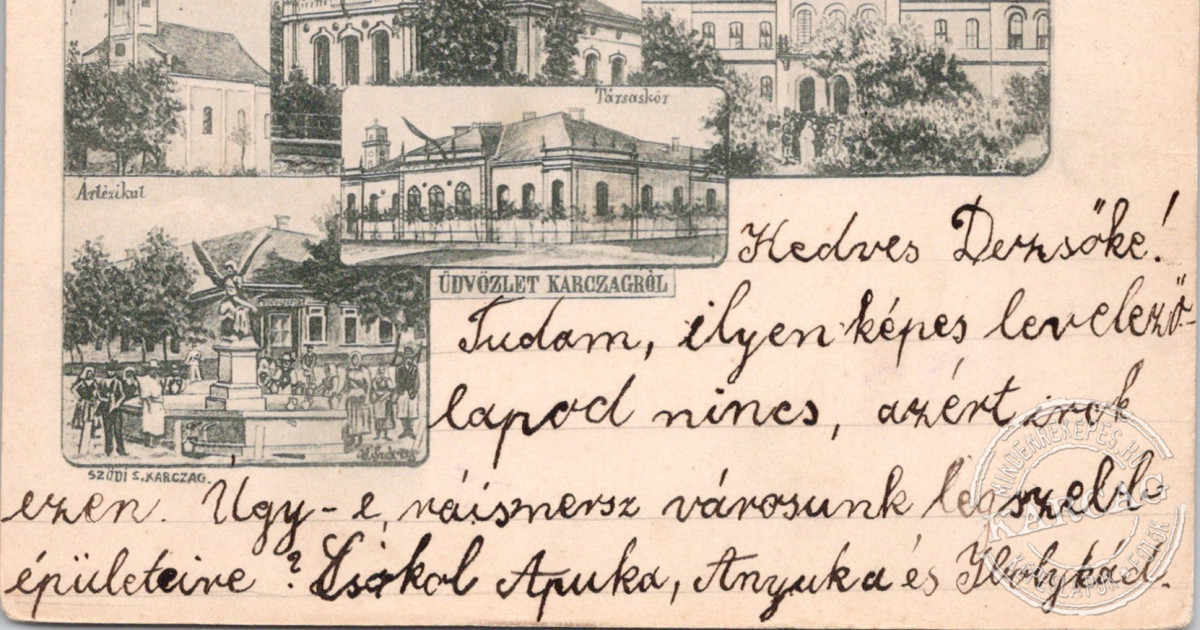 Társaskör
Artézikut
ÜDVÖZLET KARCZAGRÓL
Kedves Dezsőke!
Tudom, ilyen képes levelező-
lapod nincs, azért irok
ezen. Úgy-e, ráismersz városunk legszebb
épületeire? Csókol Apuka, Anyuka és Ibolykád.
SZÓDI S. KARCZAG.
KARCAG